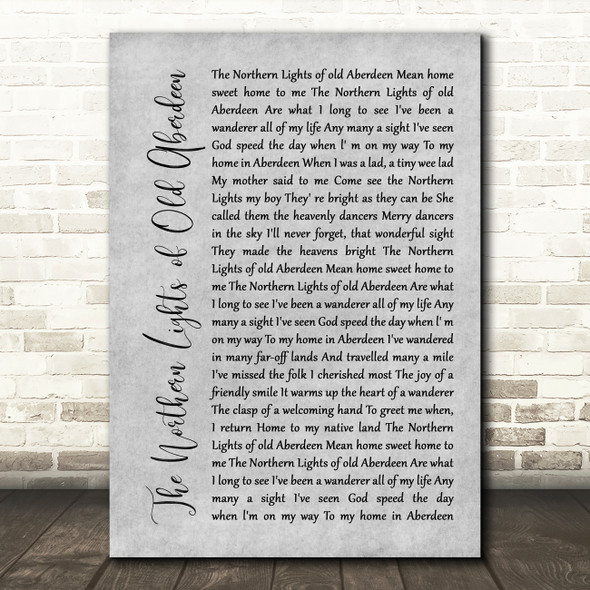 The Northern Lights of Old Aberdeen
The Northern Lights of old Aberdeen Mean home
sweet home to me The Northern Lights of old
Aberdeen Are what I long to see I've been a
wanderer all of my life Any many a sight I've seen
God speed the day when l' m on my way To my
home in Aberdeen When I was a lad, a tiny wee lad
My mother said to me Come see the Northern
Lights my boy They' re bright as they can be She
called them the heavenly dancers Merry dancers
in the sky I'll never forget, that wonderful sight
They made the heavens bright The Northern
Lights of old Aberdeen Mean home sweet home to
me The Northern Lights of old Aberdeen Are what
I long to see I've been a wanderer all of my life Any
many a sight I've seen God speed the day when l' m
on my way To my home in Aberdeen I've wandered
in many far-off lands And travelled many a mile
I've missed the folk I cherished most The joy of a
friendly smile It warms up the heart of a wanderer
The clasp of a welcoming hand To greet me when,
I return Home to my native land The Northern
Lights of old Aberdeen Mean home sweet home to
me The Northern Lights of old Aberdeen Are what
I long to see I've been a wanderer all of my life Any
many a sight I've seen God speed the day
when l'm on my way To my home in Aberdeen